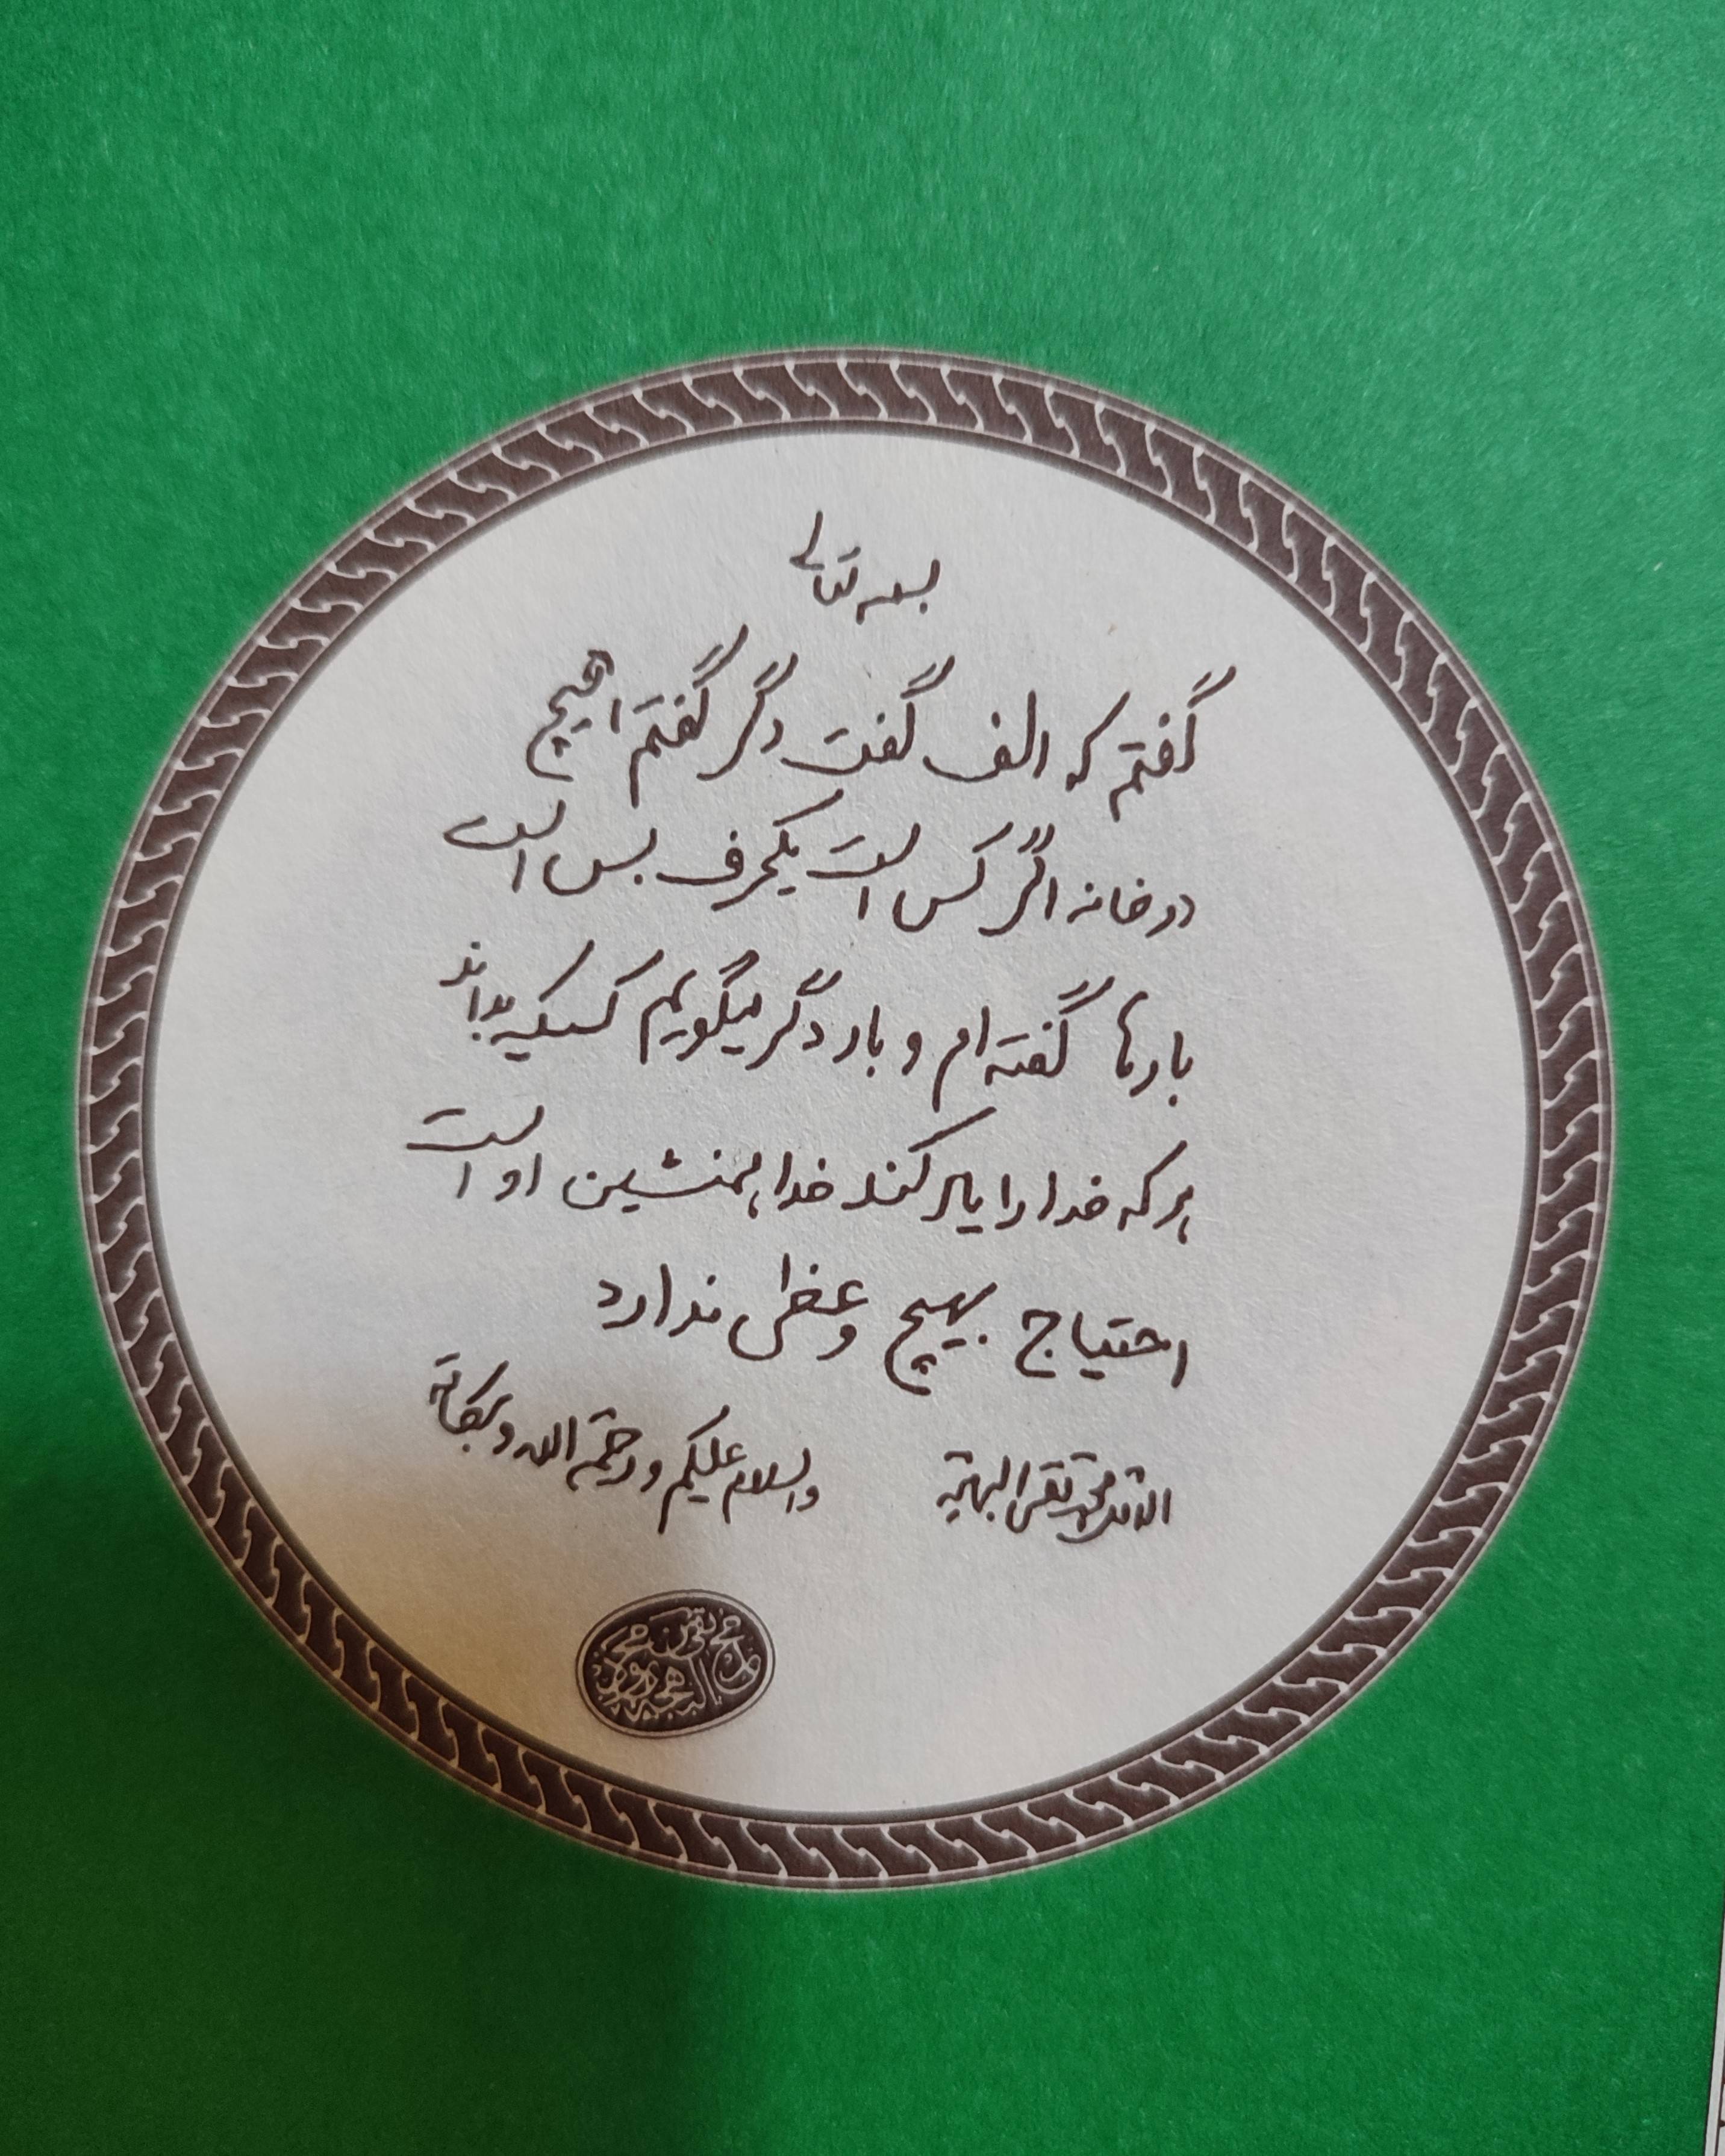 بسمه تعالی
گفتم که الف گفت دگر گفتم هیچ
در خانه اگر کس است یکحرف بس است
بارها گفته ام و بار دگر میگویم کسیکه بداند
هر که خدا را یاد کند خدا همنشین او است
احتیاج بهیچ وعظی ندارد
والسلام علیکم و رحمة الله و برکاته
الاقل محمد تقی البهجة
محمد تقی البهجة